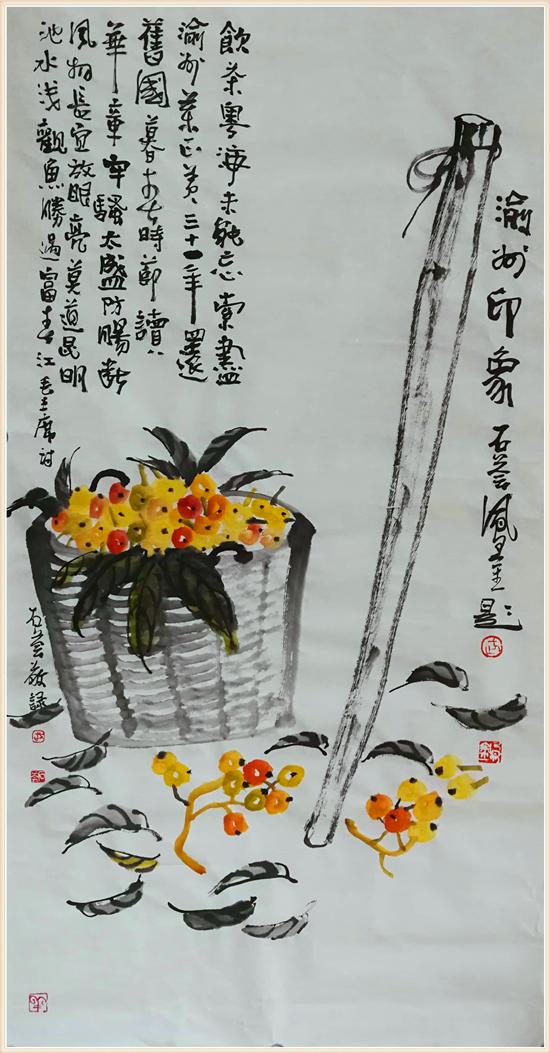 渝州印象 石荟 題
飲茶粵海未能忘索盡
渝州葉正黃三十一年還
舊國暮春時節讀
華章牢騷太盛防腸斷
風物長宜放眼亮莫道昆明
池水浅觀魚勝過富春江毛主席詩
石荟敬録